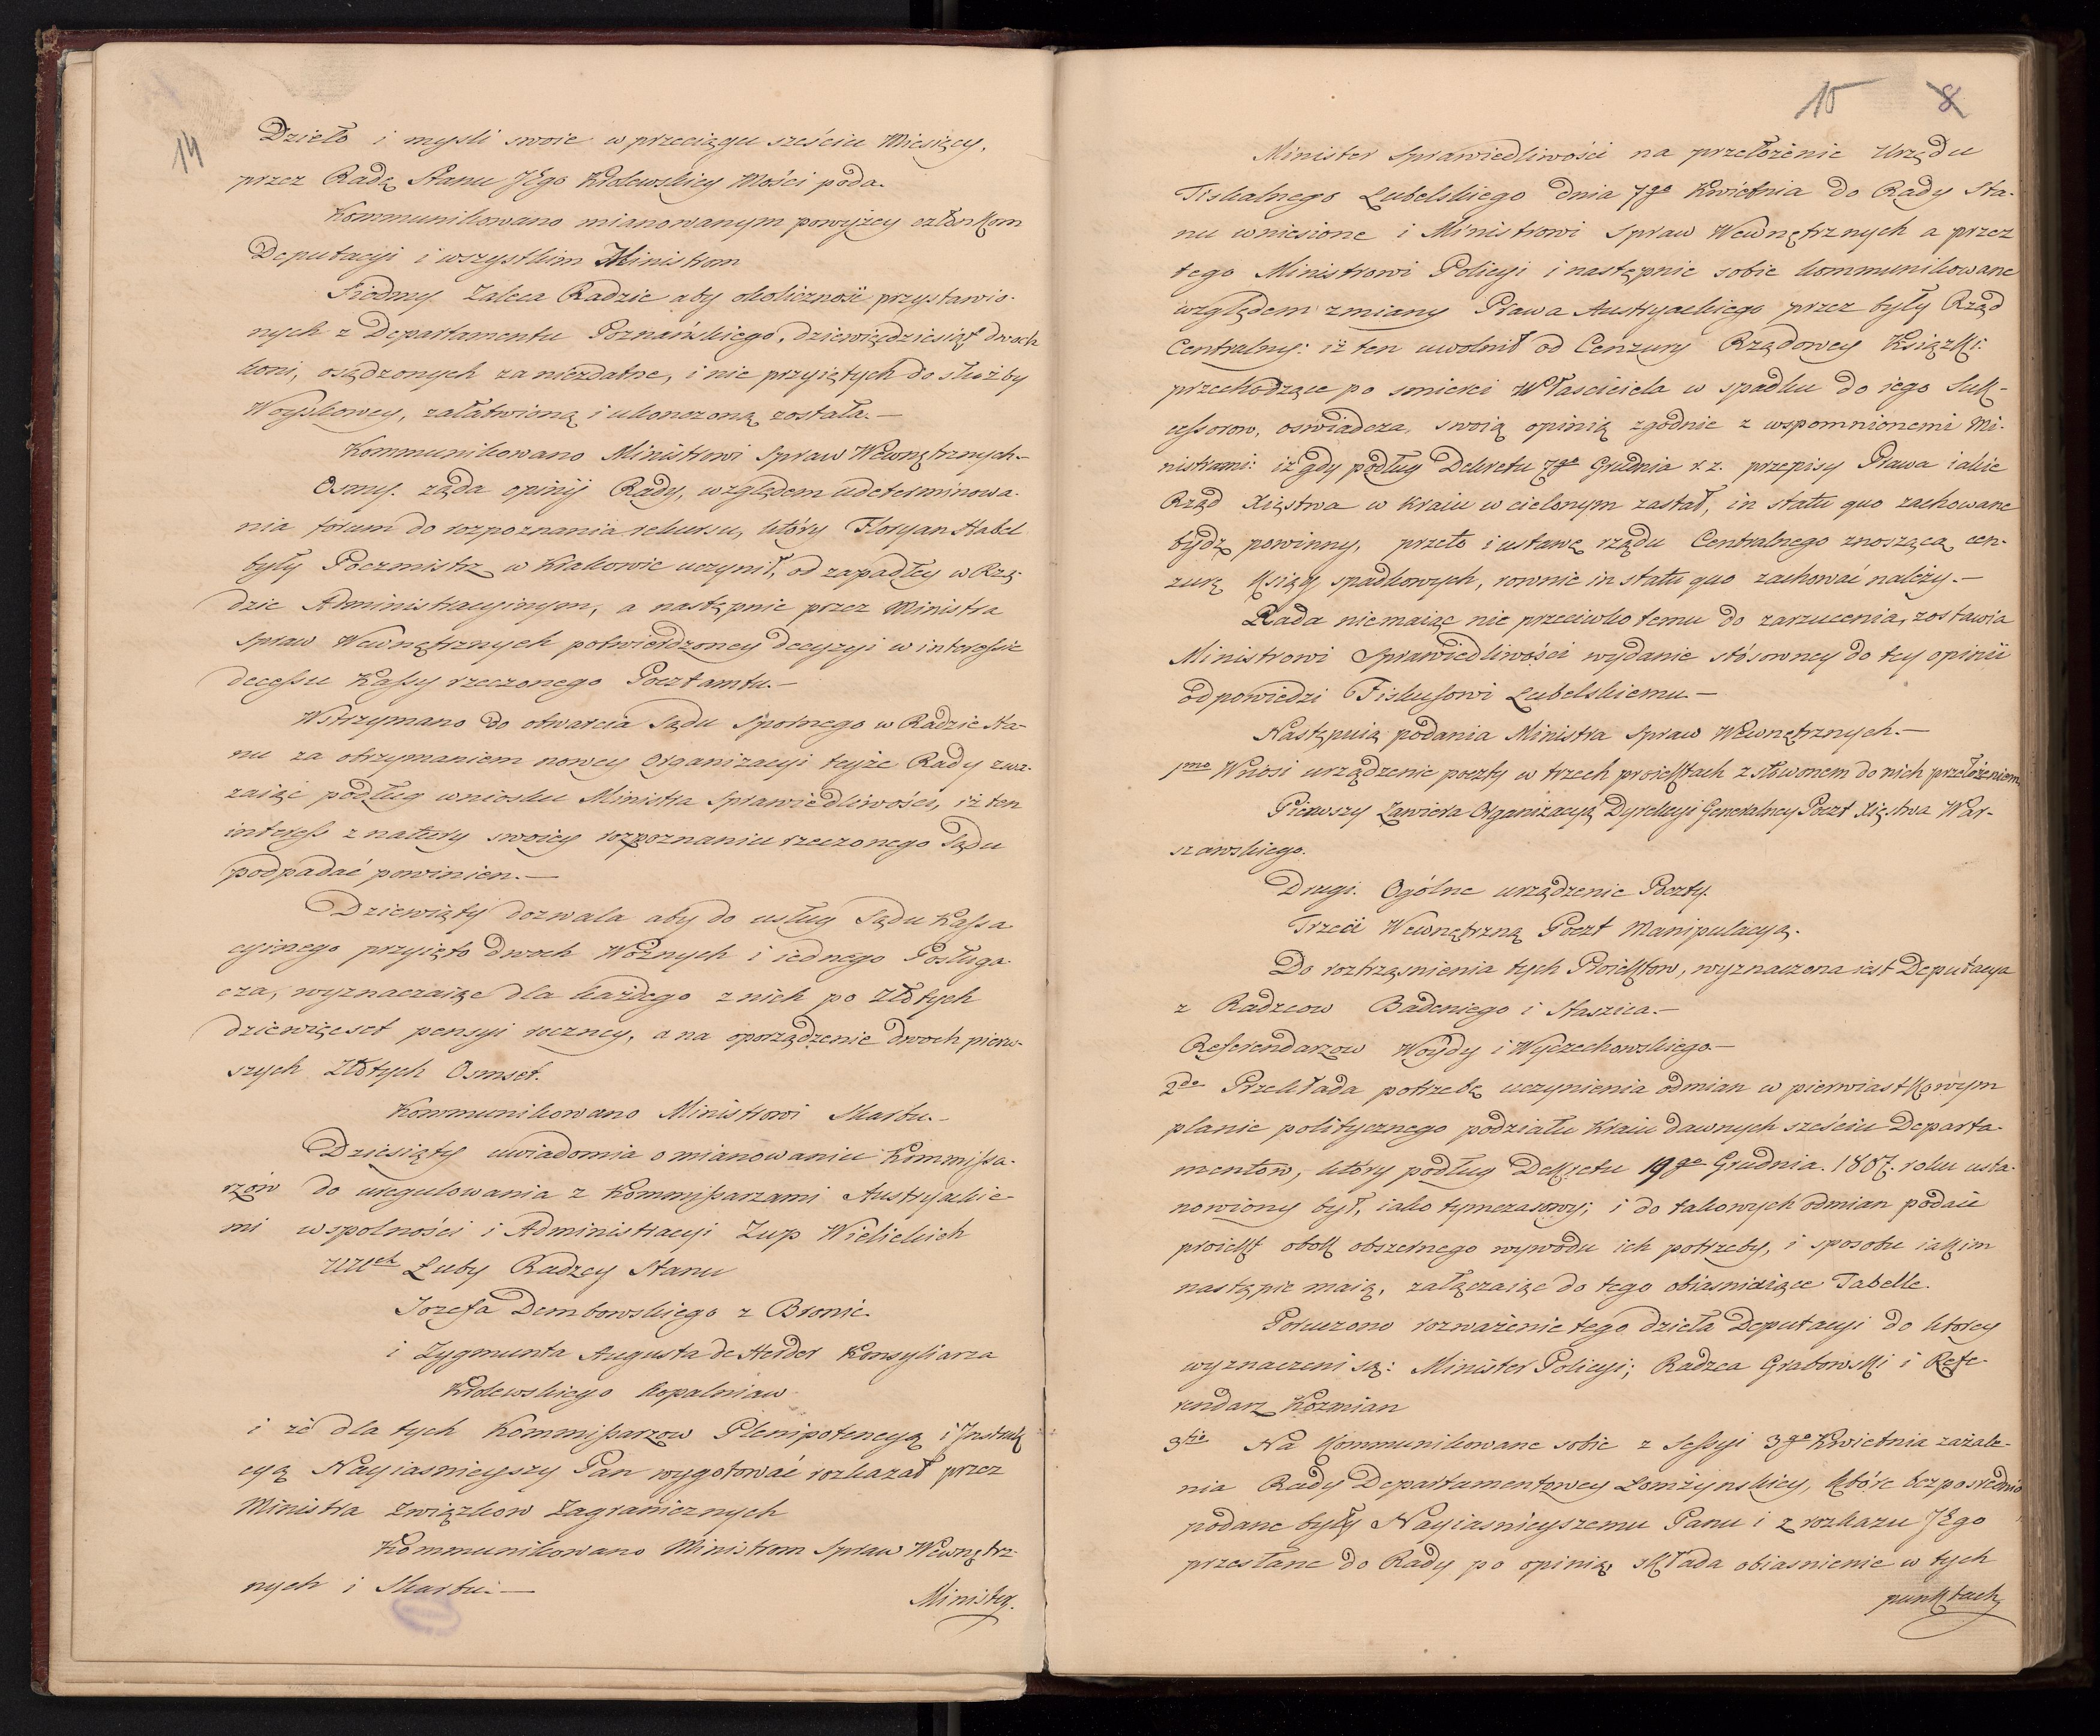 14
Dzieło i mysli swoie w przeciągu sześciu Miesięcy,
przez Radę Stanu JEgo Krolewskiey Mości poda.
Kommunikowano mianowanym powyżey członkom
Deputacyi i wszystkim Ministrom
Siodmy. Zaleca Radzie aby okoliczność przystawio-
nych z Departamentu Poznańskiego, dziewięćdziesiąt dwoch
koni, osądzonych za niezdatne, i nie przyiętych do służby
Woyskowey, załatwioną i ukonczoną została.—
Kommunikowano Ministrowi Spraw Wewnętrznych—
Osmy. żąda opinij Rady, względem udeterminowa-
nia forum do rozpoznania rekursu, który Floryan Habel
były Poczmistrz w Krakowie uczynił, od zapadłey w Rzą-
dzie Administracyinym, a następnie przez Ministra
Spraw Wewnętrznych potwierdzoney decyzyi w interessie
decessu Kassy rzeczonego Pocztamtu.—
Wstrzymano do otwarcia Sądu Spornego w Radzie Sta-
nu za otrzymaniem nowey Organizacyi teyże Rady zwa-
żaiąc podług wniosku Ministra Sprawiedliwości, iż ten
interess z natury swoiey rozpoznaniu rzeczonego Sądu
podpadać powinien.—
Dziewiąty dozwala aby do usług Sądu Kassa
cyinego przyięto dwoch Woźnych i iednego Posługa-
cza, wyznaczaiąc dla każdego z nich po Złotych
dziewięćset pensyi roczney, a na oporządzenie dwoch pierw-
szych Złotych Osmset.
Kommunikowano Ministrowi Skarbu.—
Dziesiąty uwiadomia o mianowaniu Kommissa-
rzow do uregulowania z Kommissarzami Austryackie-
mi wspolności i Administracyi Zup Wielickich
UUch Łuby Radzcy Stanu
Jozefa Dembowskiego z Bronic.
i Zygmunta Augusta de Herder Konsyliarza
Krolewskiego kopalniaw
i że dla tych Kommissarzow Plenipotencyą i Instruk
cyą Nayiasnieyszy Pan wygotować rozkazał przez
Ministra Związkow Zagranicznych
Kommunikowano Ministrom Spraw Wewnętrz-
nych i Skarbu.—
Minister.
15 8
Minister Sprawiedliwości na przełożenie Urzędu
Fiskalnego Lubelskiego dnia 7go Kwietnia do Rady Sta-
nu wniesione i Ministrowi Spraw Wewnętrznych a przez
tego Ministrowi Policyi i następnie sobie kommunikowane
względem zmiany Prawa Austryackiego przez były Rząd
Centralny: iż ten uwolnił od Cenzury Rządowey Książki:
przechodzące po smierci Własciciela w spadku do iego Suk-
cessorow, oswiadcza, swoią opinią zgodnie z wspomnionemi Mi-
nistrami: iż gdy podług Dekretu 7go Grudnia r.z. przepisy Prawa iakie
Rząd Xięstwa w Kraiu wcielonym zastał, in statu quo zachowane
bydź powinny, przeto i ustawę rządu Centralnego znoszącą cen-
zurę ksiąg spadkowych, rownie in statu quo zachować należy.—
Rada niemaiąc nic przeciwko temu do zarzucenia, zostawia
Ministrowi Sprawiedliwości wydanie stósowney do tey opinii
odpowiedzi Fiskusowi Lubelskiemu—
Następuią podania Ministra Spraw Wewnętrznych.—
1mo Wnosi urządzenie poczty w trzech proiektach z słowonem do nich przełożeniem
Pierwszy Zawiera Organizacyą Dyrekcyi Generalney Poczt Xięstwa War-
szawskiego.
Drugi. Ogólne urządzenie Poczty.
Trzeci Wewnętrzną Poczt Manipulacyą.
Do roztrząsnienia tych Proiektow, wyznaczona iest Deputacya
z Radzcow Badeniego i Staszica.—
Referendarzow Woydy i Wyczechowskiego.—
2do Przekłada potrzebę uczynienia odmian w pierwiastkowym
planie politycznego podziału Kraiu dawnych sześciu Departa-
mentow, który podług Dekretu 19go Grudnia. 1807. roku usta-
nowiony był, iako tymczasowy; i do takowych odmian podaie
proiekt obok obszernego wywodu ich potrzeby, i sposobu iakim
nastąpie maią, załączaiąc do tego obiasniaiące Tabelle.
Poruczono rozważenie tego dzieła Deputacyi do ktorey
wyznaczeni są: Minister Policyi; Radzca Grabowski i Refe-
rendarz Kozmian
3tio Na kommunikowane sobie z Sessyi 3go Kwietnia zażale-
nia Rady Departamentowey Łomżynskiey, które bezposrednio
podane były Nayiasnieyszemu Panu i z rozkazu JEgo
przesłane do Rady po opinią składa obiasnienie w tych
punktach,